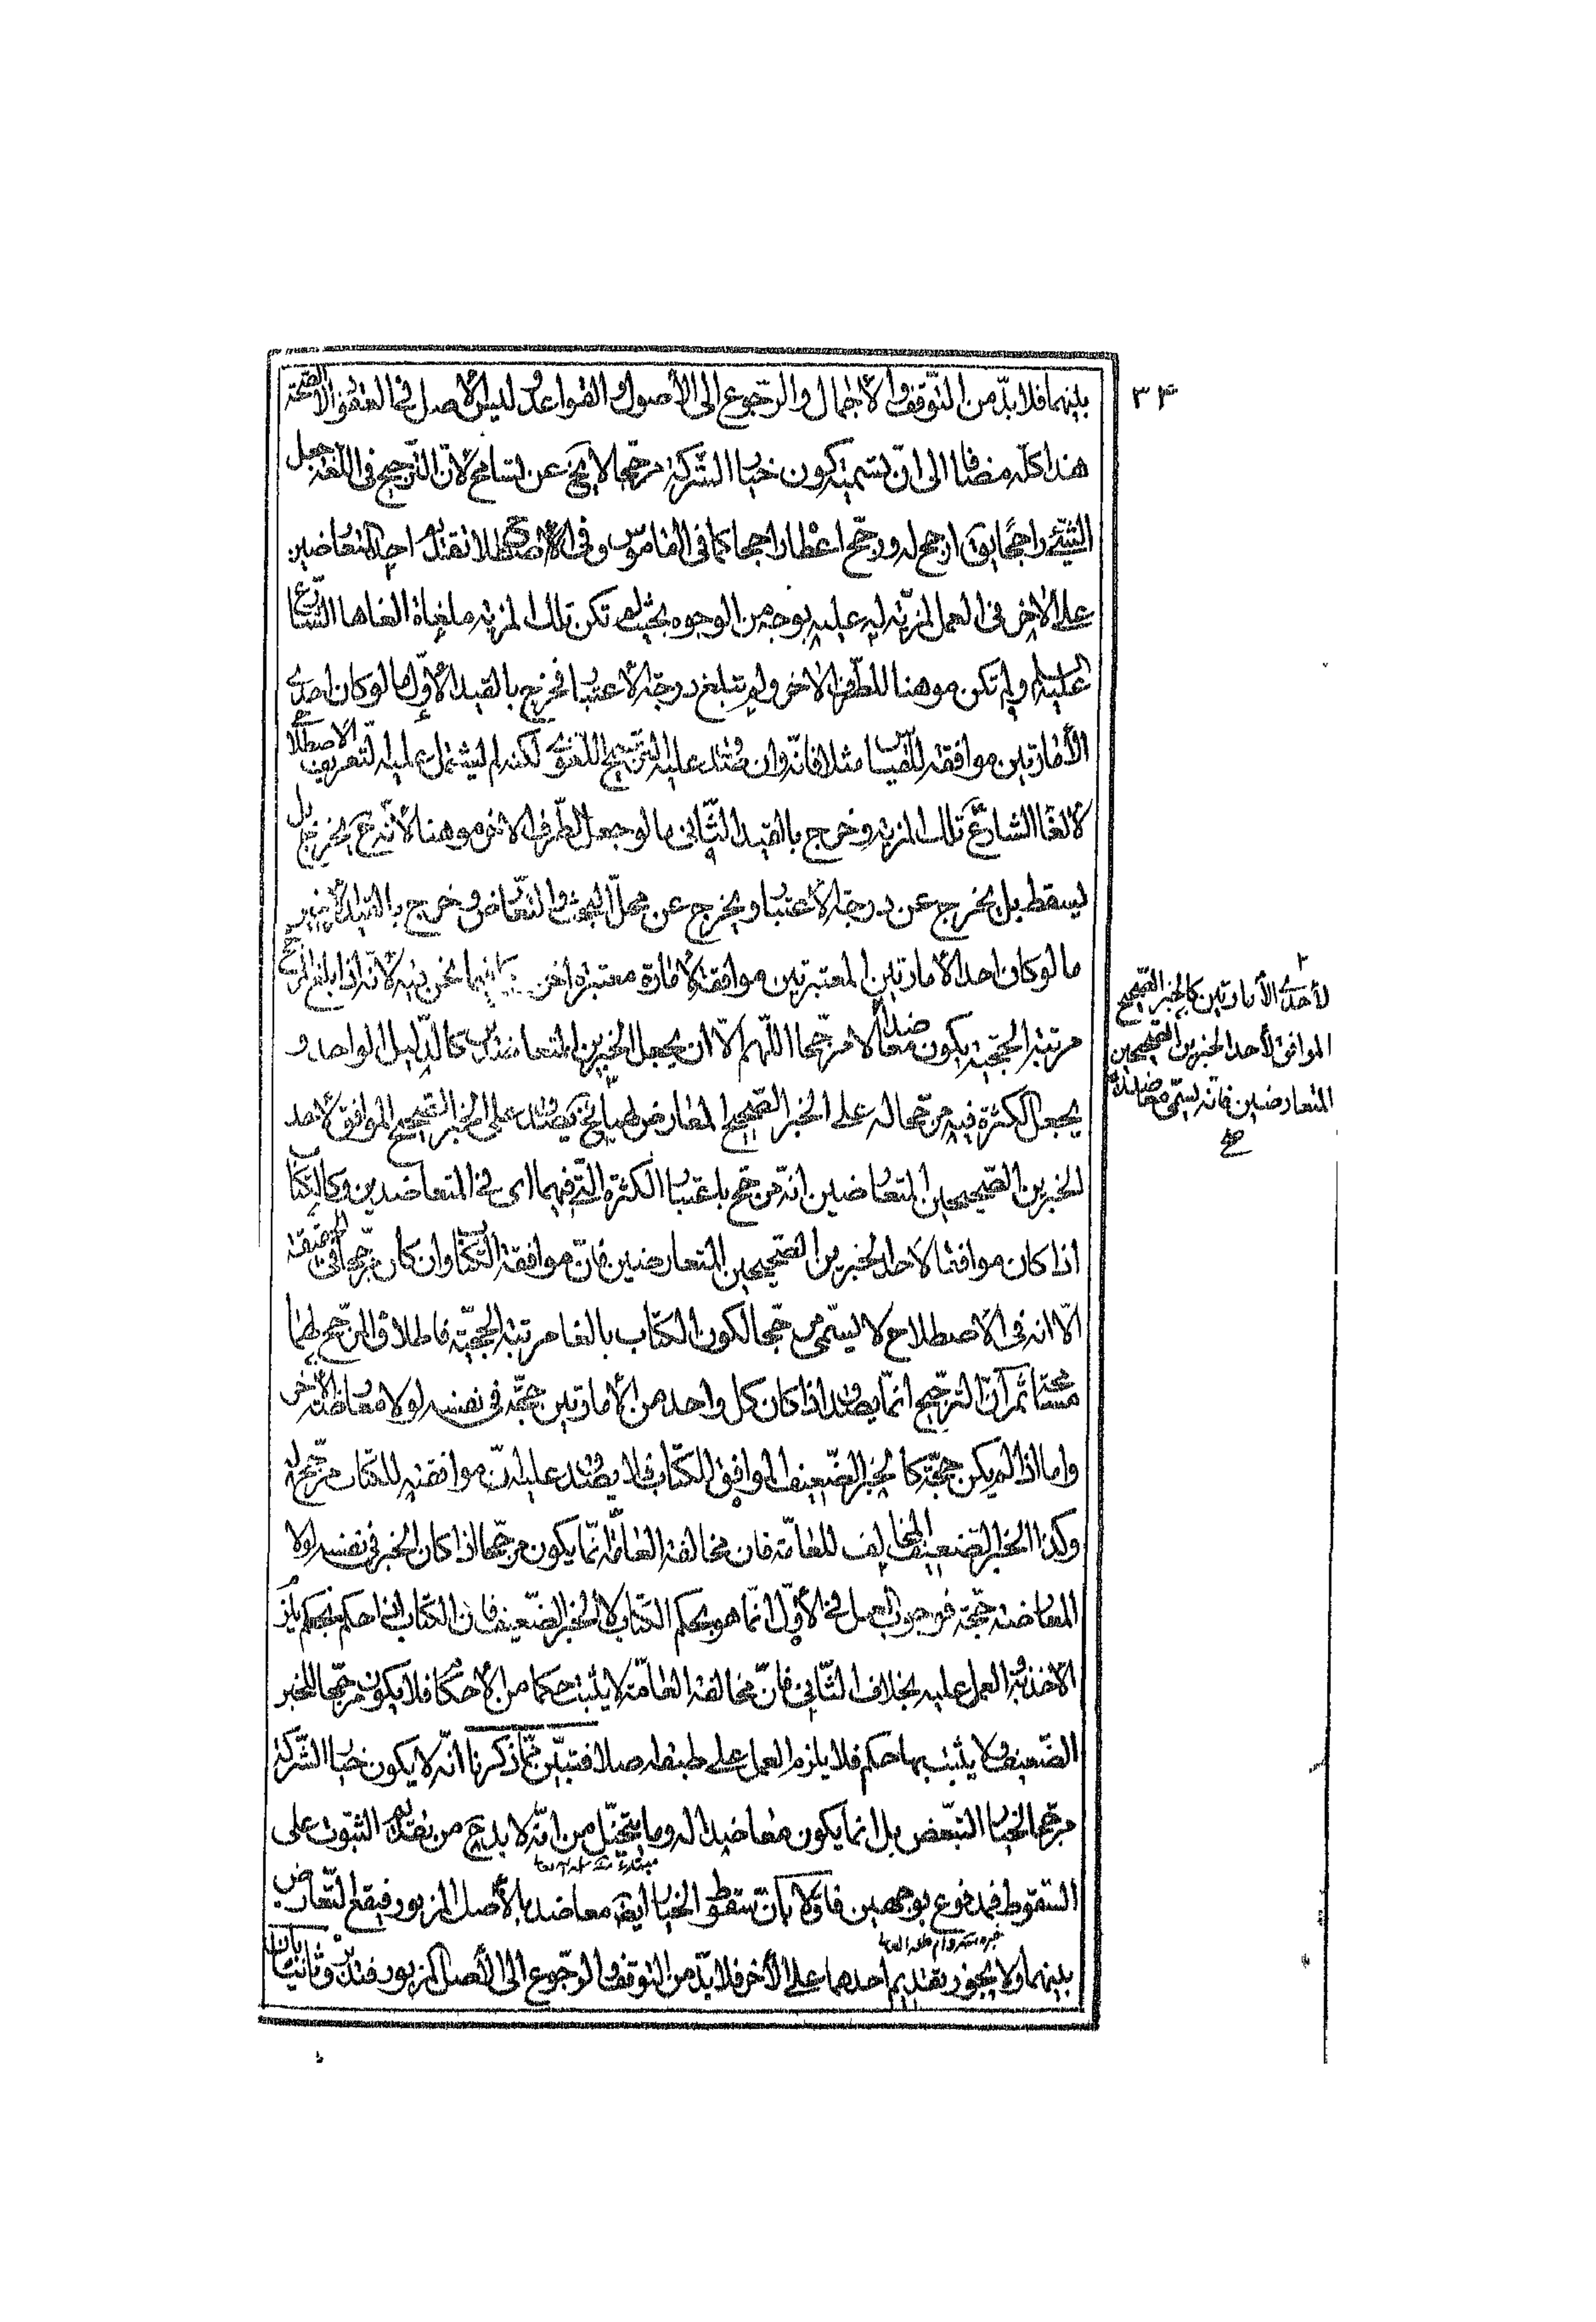 ٣۴
بينهما فلا بدّ من التّوقف والاجمال والرّجوع الى الأصول والقواعد وليس الأصل فى العقود الا الصّحّة
هذا كلّه مضافا الى انّ تسمية كون خيار الشركة مرجّحا لا يخ عن تسامح لأنّ التّرجيح فى اللّغة جعل
الشّئ راجحًا يق ارجح له ورجّح اعطا راجحا كما فى القاموس وفى الاصطلاح تقديم احد المتعارضين
على الاخر فى العمل لمزيّة له عليه بوجه من الوجوه بحيث لم تكن تلك المزيّة ملغاة الغاها الشّارع
عليه السّلم ولم تكن موهنا للطّرف الاخر ولم تبلغ درجة الاعتبار فخرج بالقيد الأوّل ما لو كان احدى
الأمارتين موافقة للقياس مثلا فانّه وان صدق عليه التّرجيح اللّغوى لكنه لم يشتمل عليه التعريف الاصطلاحى
لالغاء الشارع تلك المزيّة وخرج بالقيد الثّانى ما لو جعل الطّرف الاخر موهنا لأنّه ح يخرج بل
يسقط بل يخرج عن درجة الاعتبار ويخرج عن محلّ البحث والتّعارض وخرج بالقيد الأخير
ما لو كان احد الأمارتين المعتبرتين موافقة لأمارة معتبرة اخرى كما فيما نحن فيه لأنّه اذا بلغ المرجّح
مرتبة الحجّية يكون معاضدا لا مرجّحا اللّهم الّا ان يجعل الخبرين المتعاضدين كالدّليل الواحد و
يجعل الكثرة فيه مرجّحا له على الخبر الصّحيح المعارض لهما فح يصدق على الخبر الصّحيح الموافق لاحد
الخبرين الصّحيحين المتعارضين انّه مرجّح باعتبار الكثرة الّتى فيهما اى فى المتعاضدين وكالكتاب
اذا كان موافقا لاحد الخبرين الصّحيحين المتعارضين فانّ موافقة الكتاب وان كان مرجّحا فى الحقيقة
الّا انه فى الاصطلاح لا يسمّى مرجّحا لكون الكتاب بالغا مرتبة الحجّية فاطلاق المرجّح لهما
مسامحة ثم انّ التّرجيح انّما يصدق اذا كان كل واحد من الأمارتين حجّة فى نفسه لولا معارضة الأخر
واما اذا لم يكن حجّة كالخبر الضّعيف الموافق للكتاب فلا يصدق عليه انّ موافقته للكتاب مرجّح له
وكذا الخبر الضّعيف المخالف للعامّة فان مخالفة العامّة انّما يكون مرجّحا اذا كان الخبر فى نفسه لولا
المعارضة حجّة فوجوب العمل فى الأوّل انّما هو بحكم الكتاب لا الخبر الضّعيف فان الكتاب اذا حكم بحكم يلزم
الاخذ به والعمل عليه بخلاف الثّانى فانّ مخالفة العامّة لا يثبت حكما من الأحكام فلا يكون مرجّحا للخبر
الضّعيف ولا يثبت بها حكم فلا يلزم العمل على طبقه اصلا فتبيّن ممّا ذكرنا انّه لا يكون خيار الشّركة
مرجّحا لخيار التبعّض بل انما يكون معاضدا له وما يتخيّل من انّه لا بدّ ح من تقديم الثبوت على
السّقوط فمدفوع بوجهين فاوّلا بانّ سقوط الخيار ايض معاضد بالأصل المزبور فيقع التّعارض
بينهما ولا يجوز تقديم احدهما على الأخر فلا بدّ من التوقف والرّجوع الى الأصل المزبور فتدبّر وثانيا بانّ
لأحدى الأمارتين كالخبر الصّحيح
الموافق لأحد الخبرين الصّحيحين
المتعارضين فانّه يسمّى معاضدا
صح